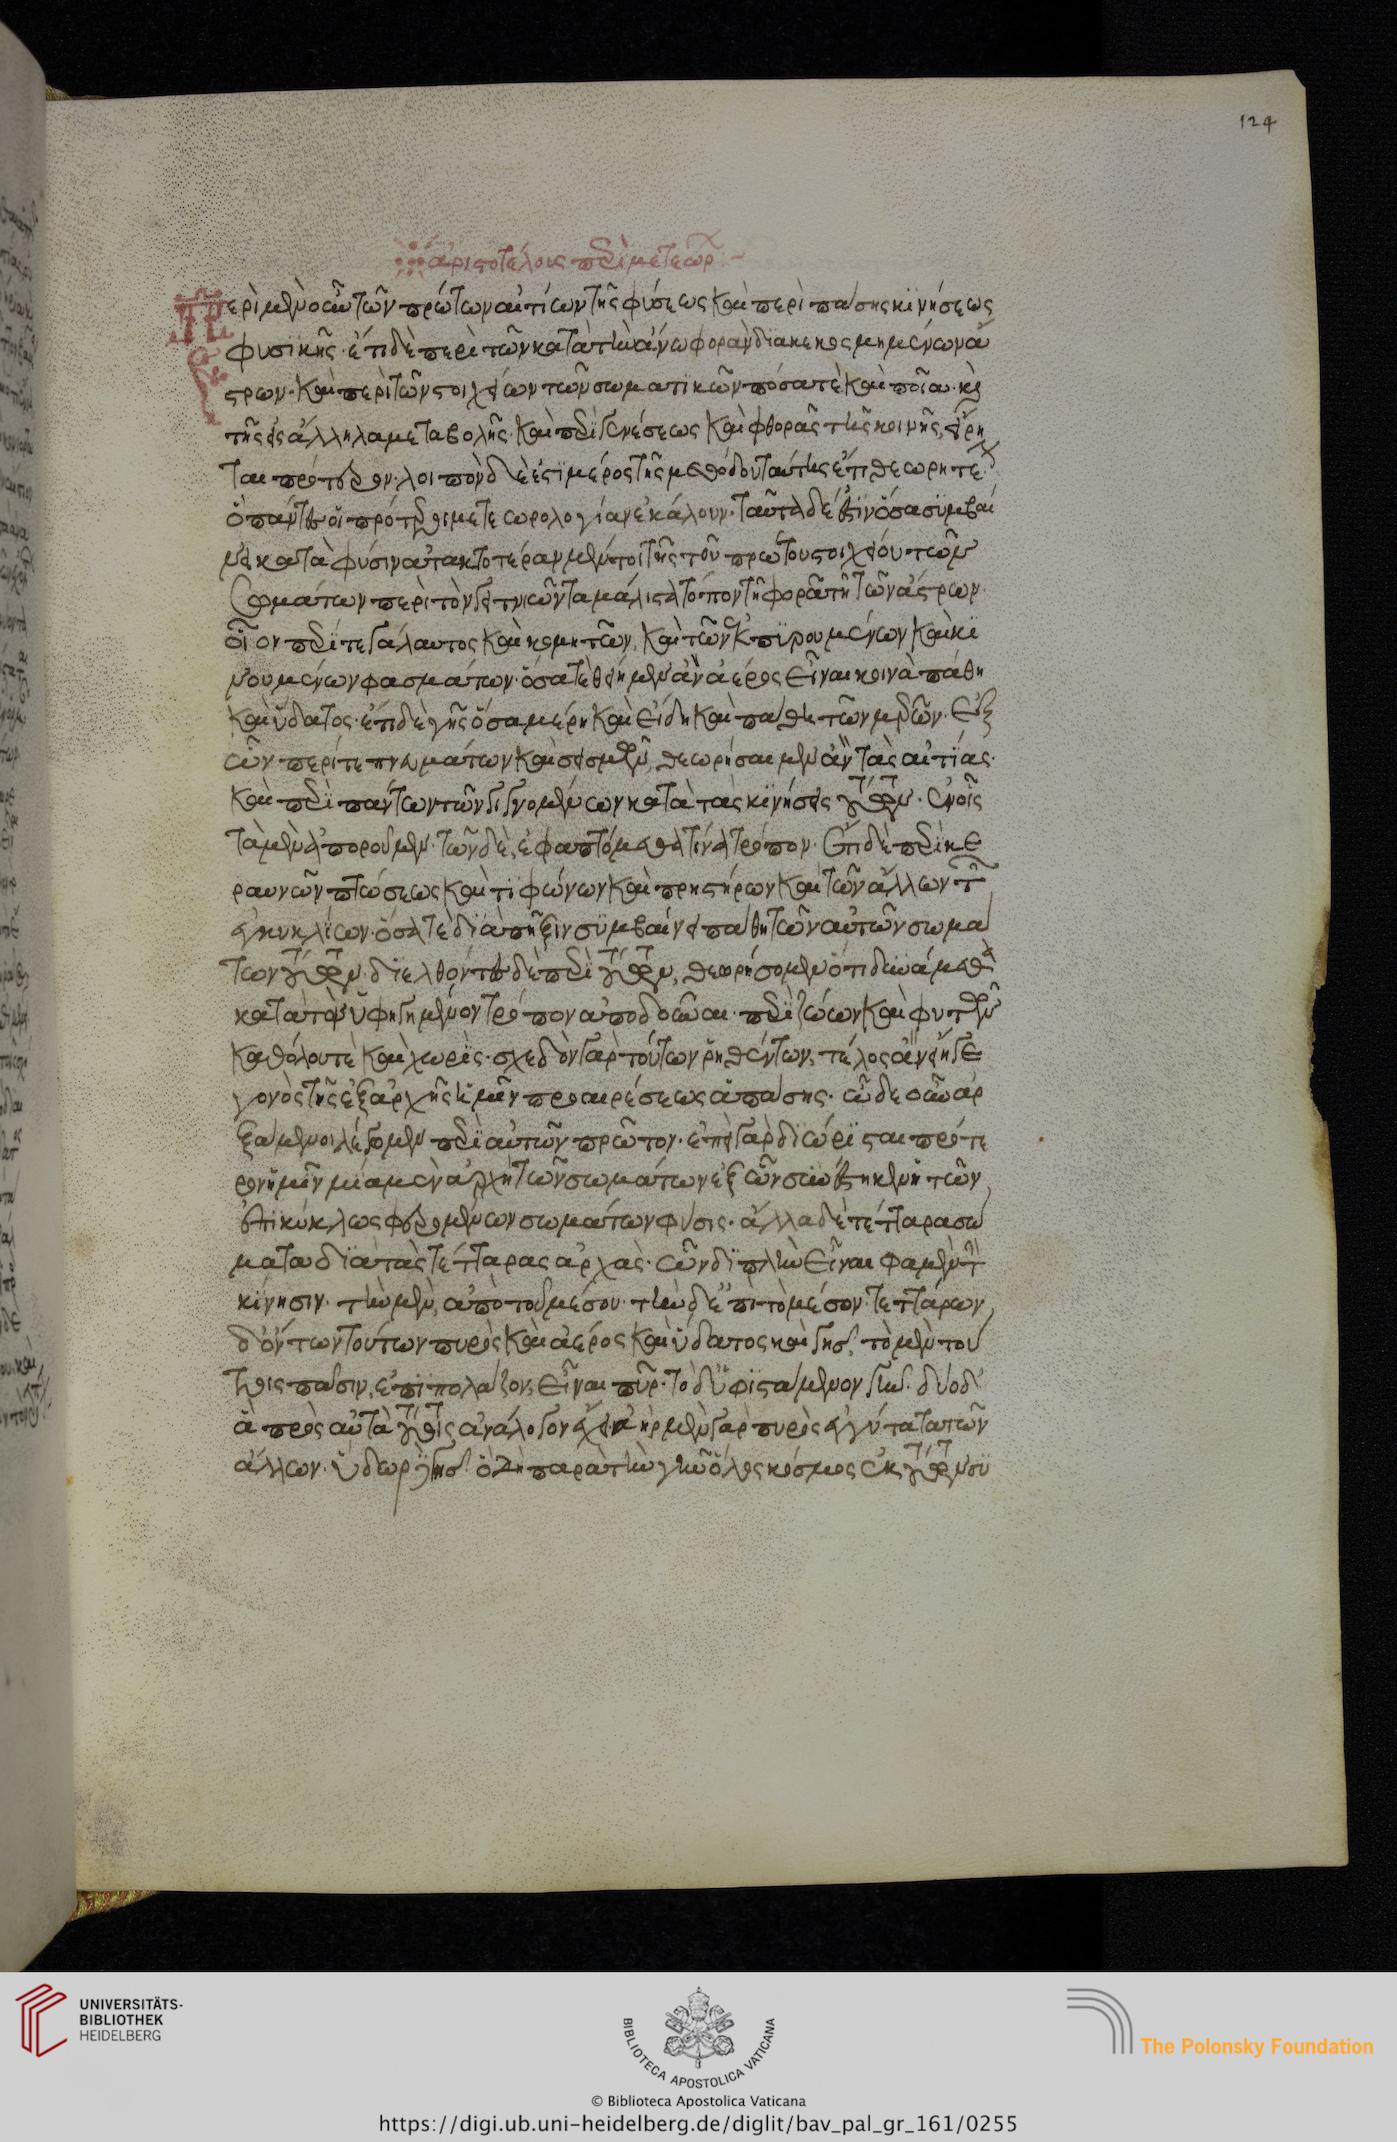 124
ἀριστοτέλους περὶ μετεώρ
Περὶ μὲν οὖν τῶν πρώτων αἰτίων τῆς φύσεως καὶ περὶ πάσης κϊνήσεως
φυσικῆς· ἔτι δὲ περὶ τῶν κατὰ τὴν ἄνω φορὰν διακεκοσμημένων ἄ
στρων· καὶ περὶ τῶν στοιχείων τῶν σωματϊκῶν πόσα τὲ καὶ ποῖα· καὶ
τῆς εἰς ἄλληλα μεταβολῆς· καὶ περὶ γενέσεως καὶ φθορᾶς τῆς κοινῆς, εἴρη
ται πρότερον· λοιπὸν δὲ ἐστὶ μέρος τῆς μεθόδου ταύτης ἔτι θεωρητέ
ὃ πάντες οἱ πρότεροι μετεωρολογίαν ἐκάλουν· ταῦτα δέ ἐστϊν ὅσα συμβαί
νει κατὰ φύσιν ἀτακτοτέραν μέντοι τῆς τοῦ πρώτου στοιχείου τῶν
σωμάτων περὶ τὸν γειτνιῶντα μάλιστα τόπον τῇ φορᾷ τῇ τῶν ἄστρων·
οἷον περί τε γάλακτος καὶ κομητῶν, καὶ τῶν ἐκπϋρουμένων καὶ κϊ
νουμένων φασμάτων· ὅσα τὲ θείημεν ἂν ἀέρος εἶναι κοινὰ πάθη
καὶ ὕδατος· ἔτι δὲ γῆς ὅσα μέρη καὶ εἴδη καὶ πάθη τῶν μερῶν· ἐξ
ὧν περί τε πνευμάτων καὶ σεισμῶν θεωρήσαιμεν ἂν τὰς αἰτΐας·
καὶ περὶ πάντων τῶν γιγνομένων κατὰ τὰς κϊνήσεις τούτων· ἐν οἷς
τὰ μὲν ἀποροῦμεν· τῶν δὲ, ἐφαπτόμεθα τινὰ τρόπον· ἔτι δὲ περὶ κε
ραυνῶν πτώσεως καὶ τϋφώνων καὶ πρηστήρων καὶ τῶν ἄλλων τῶν
ἐγκυκλίων· ὅσα τὲ διὰ πῆξιν συμβαίνει πάθη τῶν αὐτῶν σωμά
των τούτων· διελθόντες δὲ περὶ τούτων, θεωρήσομεν ὅτι δυνάμεθα
κατὰ τὸν ὑφηγημένον τρόπον ἀποδοῦναι· περὶ ζώων καὶ φυτῶν
καθόλου τὲ καὶ χωρίς· σχεδὸν γὰρ τούτων ῥηθέντων, τέλος ἂν εἴη γε
γονὸς τῆς ἐξ ἀρχῆς ἡμῖν προαιρέσεως ἁπάσης· ὧδε οὖν ἀρ
ξάμενοι λέγομεν περὶ αὐτῶν πρῶτον· ἐπεὶ γὰρ διώρϊσται πρότε
ρον ἡμῖν μία μὲν ἀρχὴ τῶν σωμάτων ἐξ ὧν συνέστηκεν ἡ τῶν
ἐγκυκλίως φερομένων σωμάτων φύσις· ἄλλα δὲ τέτταρα σώ
ματα διὰ τὰς τέτταρας ἀρχὰς· ὧν διπλῆν εἶναι φαμὲν τὴν
κίνησιν· τὴν μὲν, ἀπὸ τοῦ μέσου· τὴν δ' ἐπὶ τὸ μέσον· τεττάρων
δ' ὄντων τούτων πυρὸς καὶ ἀέρος καὶ ὕδατος καὶ γῆς, τὸ μὲν τού
τοις πᾶσιν, ἐπιπολάζον, εἶναι πῦρ· τὸ δ' ὑφϊστάμενον γῆν· δύο δ'
ἃ πρὸς αὐτὰ τούτοις ἀνάλογον ἔχει ἀὴρ μὲν γὰρ πυρὸς ἐγγύτατα τῶν
ἄλλων· ὕδωρ γῆς· ὁ δὴ παρὰ τὴν γῆν ὅλος κόσμος ἐκ τούτων συ
UNIVERSITÄTS-
BIBLIOTHEK
HEIDELBERG
BIBLIOTECA APOSTOLICA VATICANA
The Polonsky Foundation
© Biblioteca Apostolica Vaticana
https://digi.ub.uni-heidelberg.de/diglit/bav_pal_gr_161/0255